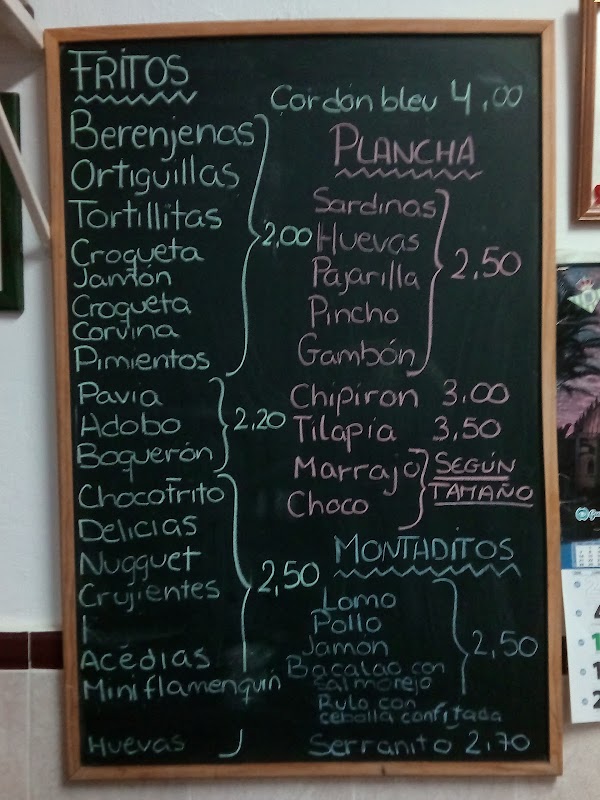 FRITOS
Berenjenas
Ortiguillas
Tortillitas
Croqueta
Jamón
Croqueta
Corvina
Pimientos
2,00
Pavia
Adobo
Boquerón
2,20
Chocofrito
Delicias
Nugguet
Crujientes
Acédias
Miniflamenquín
Huevas
2,50
Cordon bleu 4,00
PLANCHA
Sardinas
Huevas
Pajarilla
Pincho
Gambón
2,50
Chipiron 3.00
Tilapia 3,50
Marrajo
Choco
SEGÚN
TAMAÑO
MONTADITOS
Lomo
Pollo
Jamón
Bacalao con
salmorejo
Rulo con
cebolla confitada
2,50
Serranito 2,70